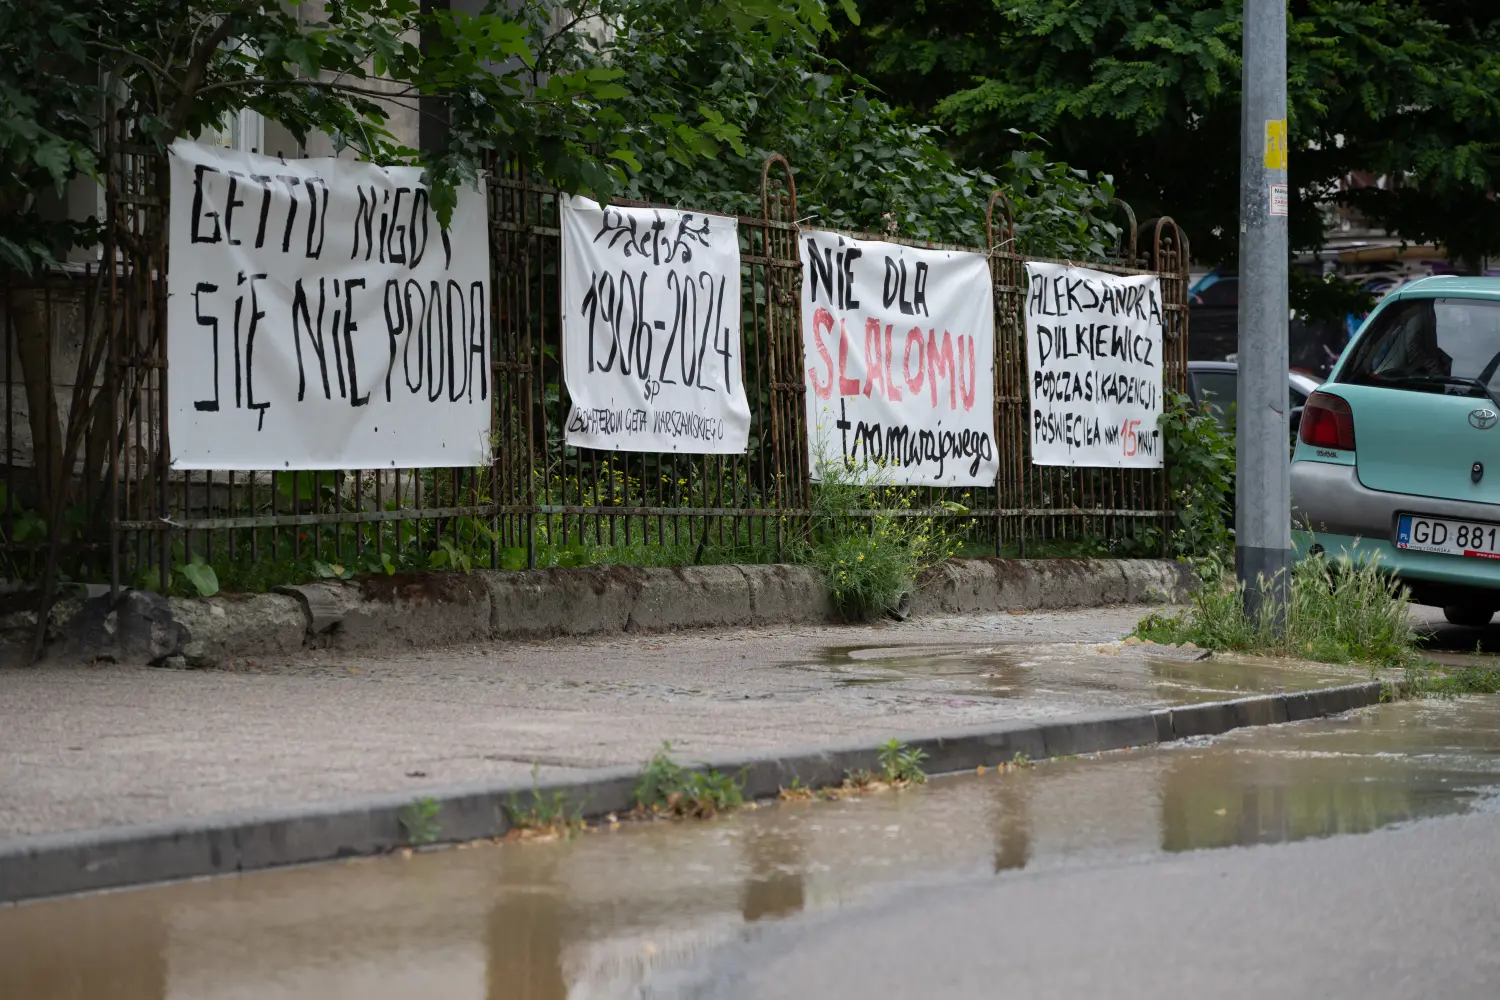 GETTO NiGDY
SIĘ NIE PODDA
1906-2024
ŚP
BOHATERÓW GETTA WARSZAWSKIEGO
NiE DLA
SLALOMU
tramwajowego
ALEKSANDRA
DULKIEWICZ
PODCZAS I KADENCJI
POŚWIĘCIŁA NAM 15 MINUT
GD 881
PL